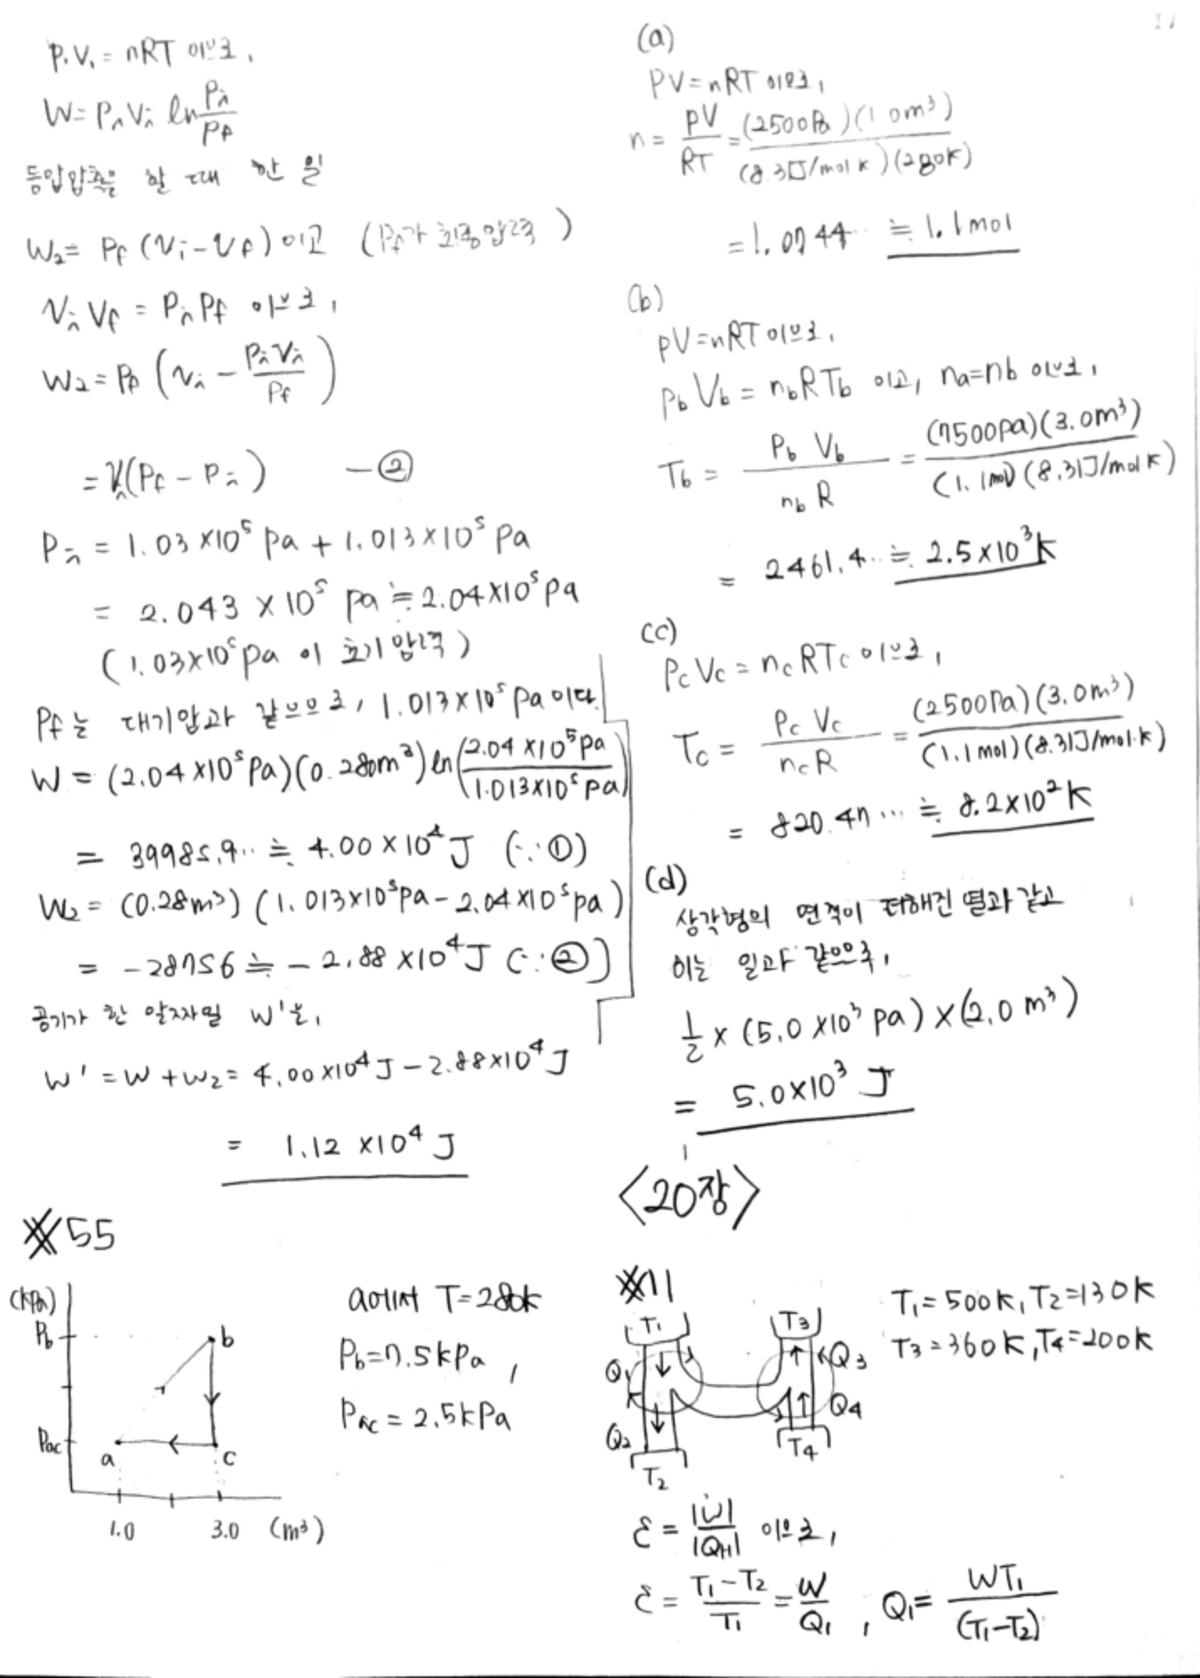 P₁V₁ = nRT 이므로,
W = PᵢVᵢ ln Pᵢ/Pf
등압압축을 할 때 한 일
W₂ = Pf (Vᵢ - Vf) 이고 (Pf가 최종압력)
VᵢVf = PᵢPf 이므로,
W₂ = Pf (Vᵢ - PᵢVᵢ/Pf)
= Vᵢ(Pf - Pᵢ) - ②
Pᵢ = 1.03×10⁵ Pa + 1.013×10⁵ Pa
= 2.043 × 10⁵ Pa ≒ 2.04×10⁵ Pa
(1.03×10⁵ Pa 이 초기압력)
Pf는 대기압과 같으므로, 1.013×10⁵ Pa이다.
W = (2.04×10⁵ Pa)(0.280m³) ln(2.04×10⁵ Pa/1.013×10⁵ Pa)
= 39985.9·· ≒ 4.00×10⁴ J (∵①)
W₂ = (0.28m³)(1.013×10⁵ Pa - 2.04×10⁵ Pa)
= -28756 ≒ -2.88×10⁴ J (∵②)
공기가 한 알짜일 W'은,
W' = W + W₂ = 4.00×10⁴ J - 2.88×10⁴ J
= 1.12×10⁴ J
※55
(kPa)
Pb
b
Pac
a
c
1.0 3.0 (m³)
a에서 T=280K
Pb=7.5kPa,
Pac = 2.5kPa
(a)
PV = nRT 이므로,
n = PV/RT = (2500Pa)(1.0m³)/(8.31J/mol K)(280K)
= 1.0744·· ≒ 1.1mol
(b)
PV = nRT 이므로,
PbVb = nbRTb 이고, na=nb 이므로,
Tb = PbVb/nbR = (7500Pa)(3.0m³)/(1.1mol)(8.31J/mol K)
= 2461.4·· ≒ 2.5×10³ K
(c)
PcVc = ncRTc 이므로,
Tc = PcVc/ncR = (2500Pa)(3.0m³)/(1.1mol)(8.31J/mol·K)
= 820.47··· ≒ 8.2×10² K
(d)
삼각형의 면적이 더해진 열과 같고
이는 일과 같으므로,
1/2 × (5.0×10³ Pa) × (2.0 m³)
= 5.0×10³ J
<20장>
※11
T₁ T₃
Q₁ Q₃
Q₂ Q₄
T₂ T₄
T₁ = 500K, T₂ = 130K
T₃ = 360K, T₄ = 200K
ε = |W|/|QH| 이므로,
ε = T₁-T₂/T₁ = W/Q₁, Q₁ = WT₁/(T₁-T₂)